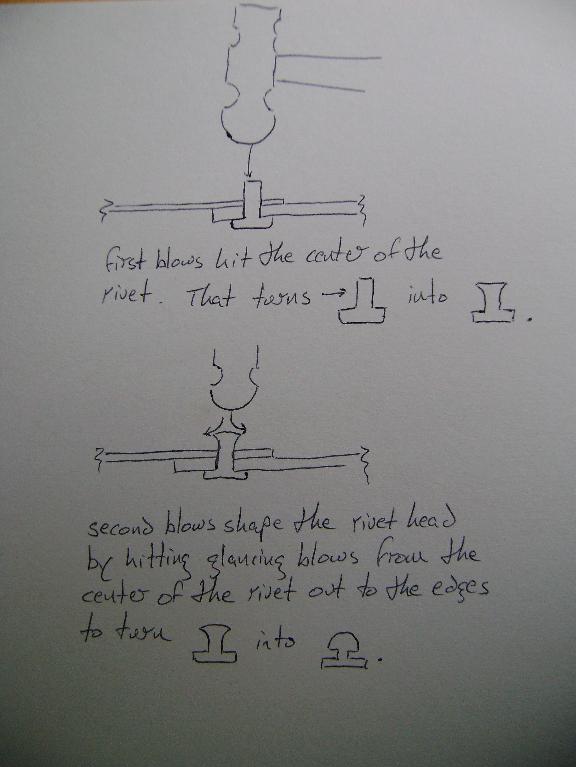 first blows hit the center of the
rivet. That turns → into .
second blows shape the rivet head
by hitting glancing blows from the
center of the rivet out to the edges
to turn into .